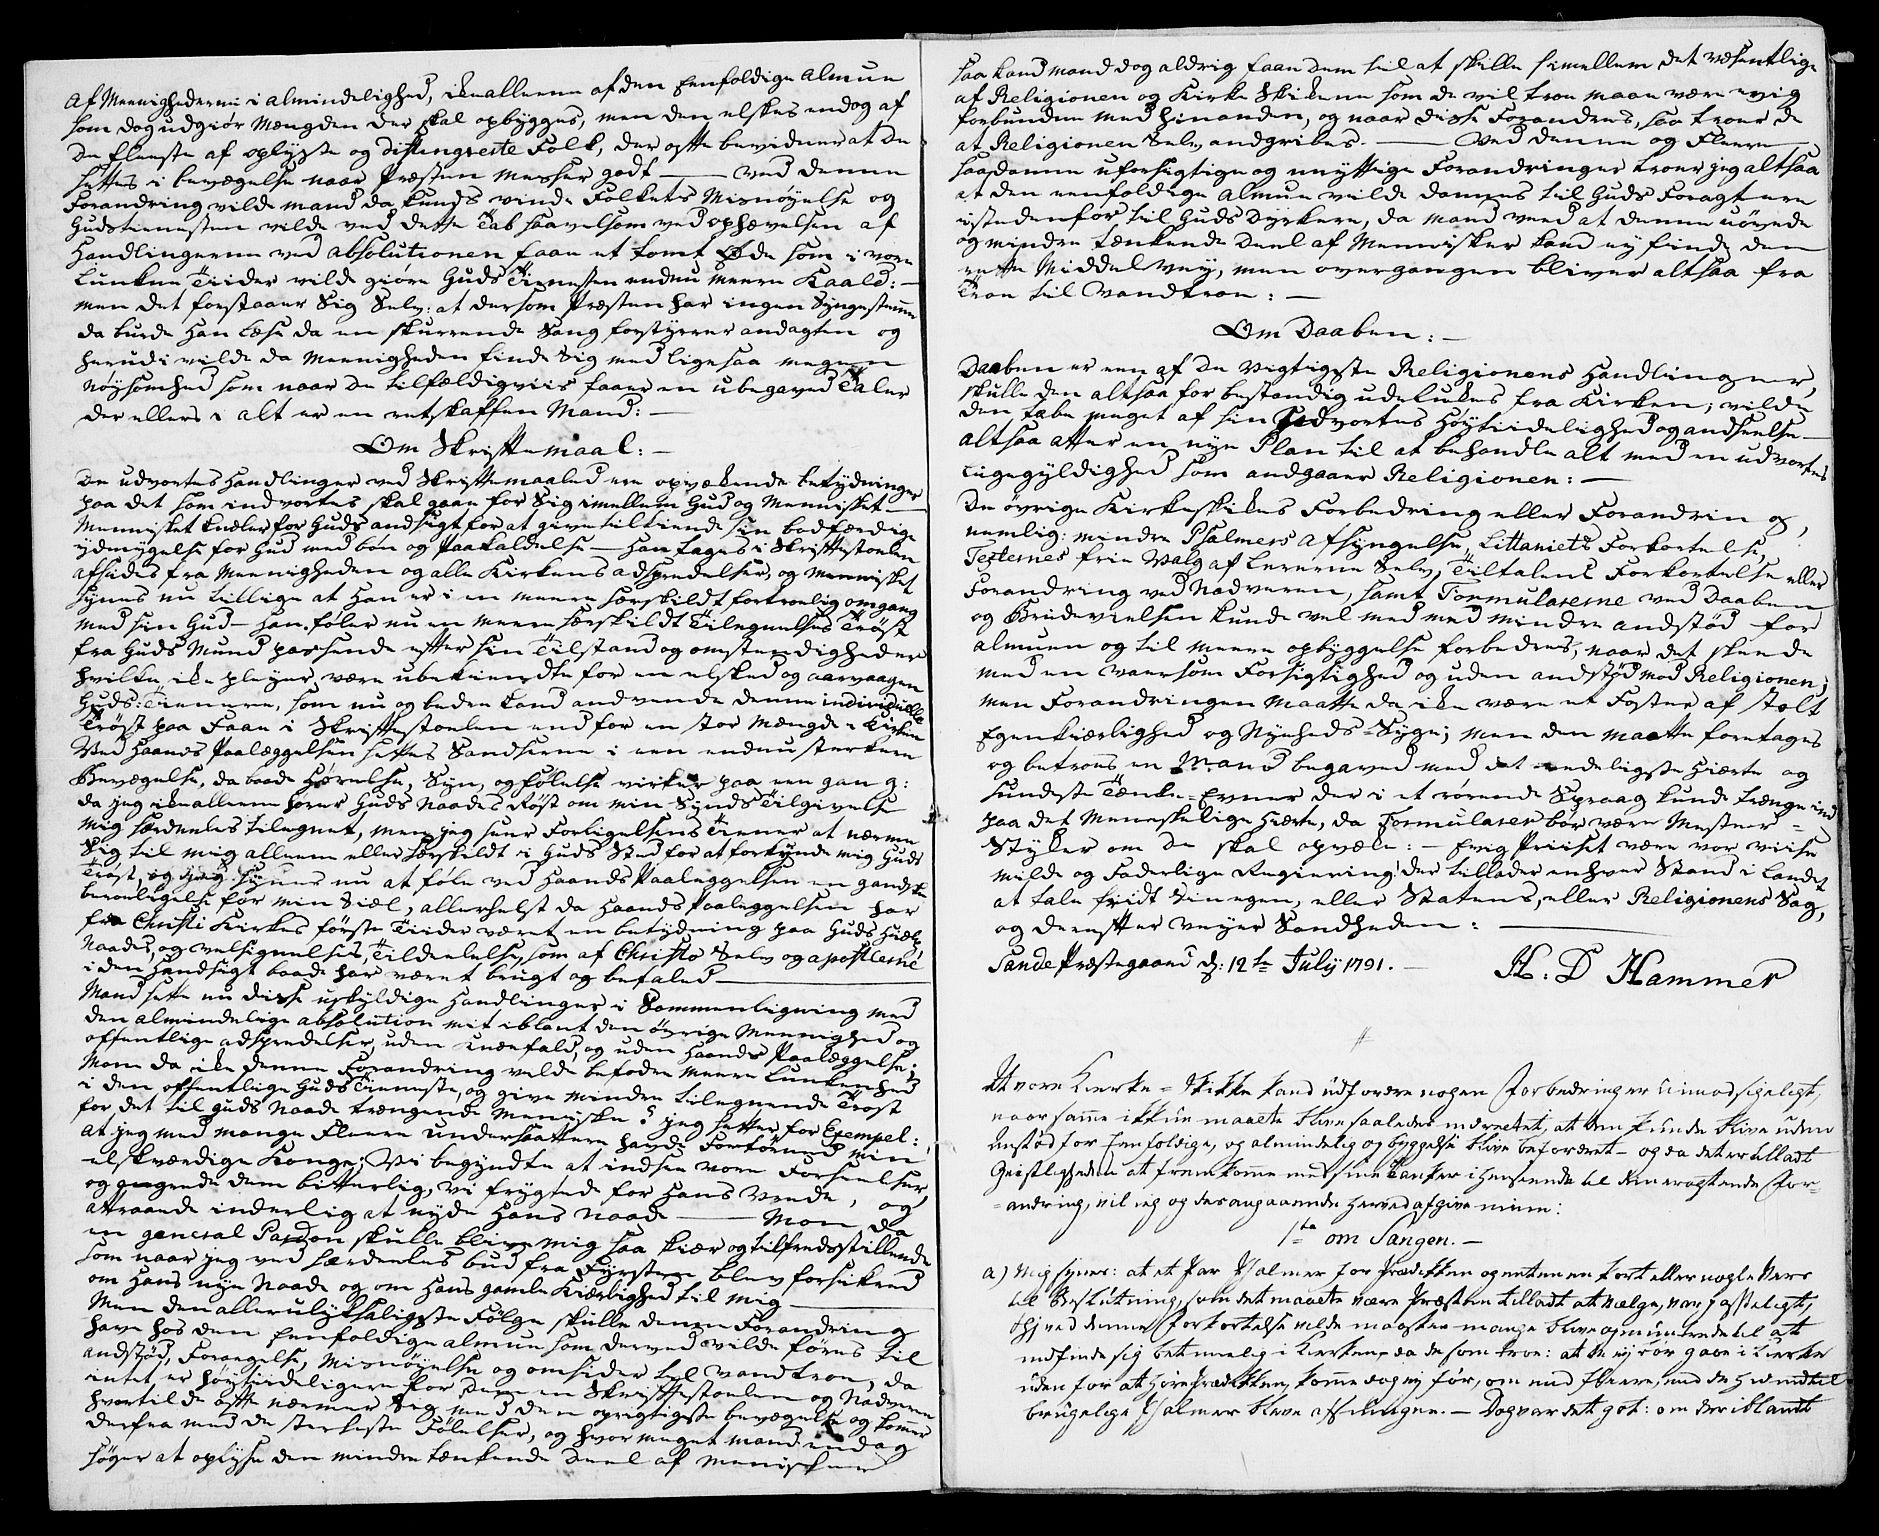 Af Meenighederne i Almindelighed, ikke alleene af den Eenfoldige Almue
som dog udgiør Mængden der skal opbygges, men den elskes endog af
de fleeste af oplyste og distingverte Folk, der ofte bevidner at de
settes i bevægelse naar Præsten Messer godt — ved denne
Forandring vilde mand da kuns vinde Folkets Misnöyelse og
Gudstienesten vilde ved dette Tab saavelsom ved ophævelsen af
Handlingerne ved Absolutionen faae et tomt Øde som i vore
Lunkne Tiider vilde giöre Guds Tienesten endnu meere Kaald: —
men det forstaaer Sig Selv: at dersom Præsten har ingen Syngestemme
da burde han læse da en skurrende Sang forstyrrer andagten og
herudi vilde da Meenigheden finde Sig med ligesaa megen
Nöysomhed som naar de tilfældigviis faaer en ubegaved Taler
der ellers i alt er en retskaffen Mand: —
Om Skriftemaal: —
De udvortes Handlinger ved Skriftemaalet ere opvækende betydninger
paa det som indvortes skal gaae for Sig imellem Gud og Mennisket —
Mennisket knæler for Guds andsigt for at give tilkiende sin bodfærdige
ydmygelse for Gud med bön og Paakaldelse — Han tages i Skriftestoelen
afsides fra Meenigheden og alle Kirkens adspredelser, og Mennisket
synes nu tillige at han er i en meere særskildt fortroelig omgang
med sin Gud — Han föler nu en meere særskildt Tilegnelses Tröst
fra Guds Mund passende efter sin Tilstand og omstændigheder
hvilke ikke pleyer være ubekiendte for en elsked og aarvaagen
Guds: Tienere, som nu og bedre kand andvende denne individuelle
Tröst paa Faae i Skriftestoelen end for en stor Mængde i Kirken
Ved Haands Paalæggelsen settes Sandserne i een endnu sterkere
Bevægelse, da baade Hörelse, Syn, og Fölelse virker paa een gang:
da jeg ikke alleene hörer Guds Naades Röst om min Synds Tilgivelse
mig særdeeles tilegnet, men jeg seer Forligelsens Tiener at nærme
Sig til mig alleene eller særskildt i Guds Sted for at forkynde mig Guds
Trøst, og jeg synes nu at föle ved Haands Paalæggelsen en gandske
beroeligelse for min Siæl, allerhelst da Haands Paaleggelsen har
fra Christi Kirkes förste Tiider været en betydning paa Guds Hielp
Naades, og velsignelses, Tildeelelse, som af Christo Selv og apostlerne
i den Hændsigt baade har været brugt og befaled —
Mand sette nu disse uskyldige Handlinger i Sammenligning med
den almindelige absolution mit iblant den övrige Meenighed og
offentlige adspredelser, uden Knæefald, og uden Haands Paalæggelse;
Mon da ikke denne Forandring vilde befodre meere Lunkenhed
i den offentlige Guds Tieneste, og give mindre tilegnende Tröst
for det til Guds Naade trængende Menniske? jeg setter for Exempel:
at jeg med mange Fleere undersaattere havde Fortörned min
elskværdige Konge; Vi begyndte at indsee vore Forseelser,
og angrede dem bitterlig, vi frygtede for Hans Vrede, og
attraaede inderlig at nyde Hans Naade — Mon da
en general Pardon skulle blive mig saa kiær og tilfredsstillende
som naar jeg ved særdeeles bud fra Fyrsten blev forsikred
om Hans nye Naade og om Hans gamle Kiærlighed til mig —
Men den allerulyksaligste Fölge skulle denne Forandring
have hos den Eenfoldige almue som derved vilde föres til
andstöd, Forargelse, Misnöyelse og omsider til Vandtroe, da
intet er höytiideligere for dem en Skriftestoelen og Nadveren
hvortil de ofte nærmer Seg med den oprigtigste bevægelse og kommer
derfra med de sterkeste Fölelser, og hvor meget mand endog
söger at oplyse den mindre tænkende Deel af Menisker
saa kand mand dog aldrig faae dem til at skille imellem det væsentlige
af Religionen og Kirke Skikkene som de vil troe maae være evig
forbundne med hinanden, og naar disse Forandres, saa troer de
at Religionen Selv andgribes. — Ved denne og Fleere
saadanne uforsigtige og unyttige Forandringer troer jeg altsaa
at den eenfoldige Almue vilde dannes til Guds Foragtere
istedenfor til Guds Dyrkere, da mand veed at denne uövede
og mindre tænkende Deel af Mennisker kand ey finde den
rette Middel Vey, men overgangen bliver altsaa fra
Troe til Vandtroe: —
Om Daaben: —
Daaben er een af de vigtigste Religionens Handlinger,
skulle den altsaa for bestandig udelukes fra Kirken; vilde
den tabe meget af sin Udvortes Höytiidelighed og andseelse —
altsaa atter en nye Plan til at behandle alt med en udvortes
Ligegyldighed som andgaaer Religionen: —
De övrige Kirkeskikes Forbedring eller Forandring,
nemlig: mindre Psalmers Afsyngelse, Littaniets Forkortelse,
Texternes frie Valg af Lererne Selv, Tiltalens Forkortelse eller
Forandring ved Nadveren, samt Formularerne ved Daaben
og Brudevielsen kunde vel med mindre andstöd for
almuen og til meere opbyggelse forbedres, naar det skeede
med en varsom Forsigtighed og uden andstöd mod Religionen;
men Forandringen maatte da ikke være et Foster af stolt
Egenkiærlighed og Nyeheds-Syge; men den maatte foretages
og betroes en Mand begaved med det redeligste Hierte og
sundeste Tænke-Evner der i et rörende Spraag kunde trænge ind
paa det Menneskelige Hierte, da Formularer bör være Mester=
Styker om de skal opvæke: — Evig Priiset være vor viise
milde og Faderlige Regiering! der tillader enhver Stand i Landet
at tale fridt Sin egen, eller Statens, eller Religionens Sag,
og derefter veyer Sandheden: —
Sande Præstegaard d: 12te July 1791. — H: D Hammer
At vore Kierke-Skikke kand udfordre nogen Forbedring er uimodsigeligt,
naar samme ikkun maatte blive saaledes indrettet, at den kunde blive uden
Anstød for Eenfoldige, og almindelig opbyggelse blive befordret — og da det er tilladt
Geistligheden at fremkomme med sine Tanker i Henseende til den eragtende For=
=andring, vil jeg og desangaaende herved afgive mine:
1te om Sangen. —
a) Mig synes: at et Par Psalmer for Prædikken og enten en kort eller nogle Vers
til Beslutning, som det maatte være Præsten tilladt at vælge, var passeligt,
thj ved denne Forkortelse vilde maaskee mange blive opmuntrede til at
indfinde sig betimelig i Kierken, da de som troe: at de ey bör gaae i Kierke
uden for at höre Prædikken, komme dog ey för, om end fleere, end de hidindtil
brugelige Psalmer bleve afsungne. — Dog var det got: om der iblandt